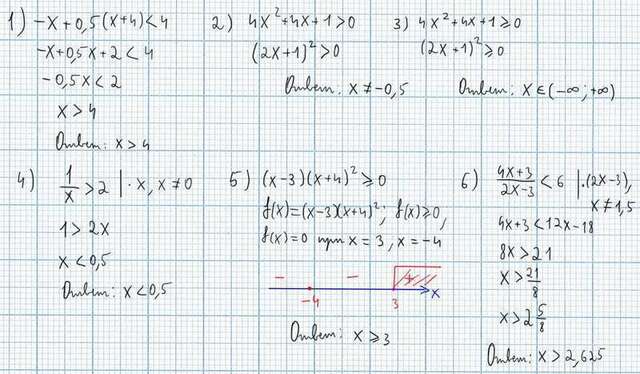 1) -x+0,5(x+4)<4
-x+0,5x+2<4
-0,5x<2
x>4
Ответ: x>4
2) 4x²+4x+1>0
(2x+1)²>0
Ответ: x≠-0,5
3) 4x²+4x+1≥0
(2x+1)²≥0
Ответ: x∈(-∞;+∞)
4) 1/x>2 |·x, x≠0
1>2x
x<0,5
Ответ: x<0,5
5) (x-3)(x+4)²≥0
f(x)=(x-3)(x+4)²; f(x)≥0,
f(x)=0 при x=3, x=-4
- - +
-4 3 x
Ответ: x≥3
6) (4x+3)/(2x-3)<6 |·(2x-3),
x≠1,5
4x+3<12x-18
8x>21
x>21/8
x>2 5/8
Ответ: x>2,625